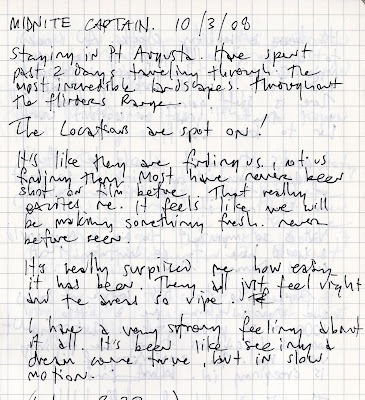 MIDNITE CAPTAIN. 10/3/08
Staying in Pt Augusta. Have spent
past 2 days traveling through. The
most incredible landscapes. throughout
the flinders Range.
The Locations are spot on!
It's like they are finding us, not us
finding them. Most have never been
shot on film before. That really
excites me. It feels like we will
be making something fresh. never
before seen.
It's really surprised me how easy
it has been. They all just feel right
and the areas so
I have a very strong feeling about
it all. It's been like seeing a
dream come true, but in slow
motion.